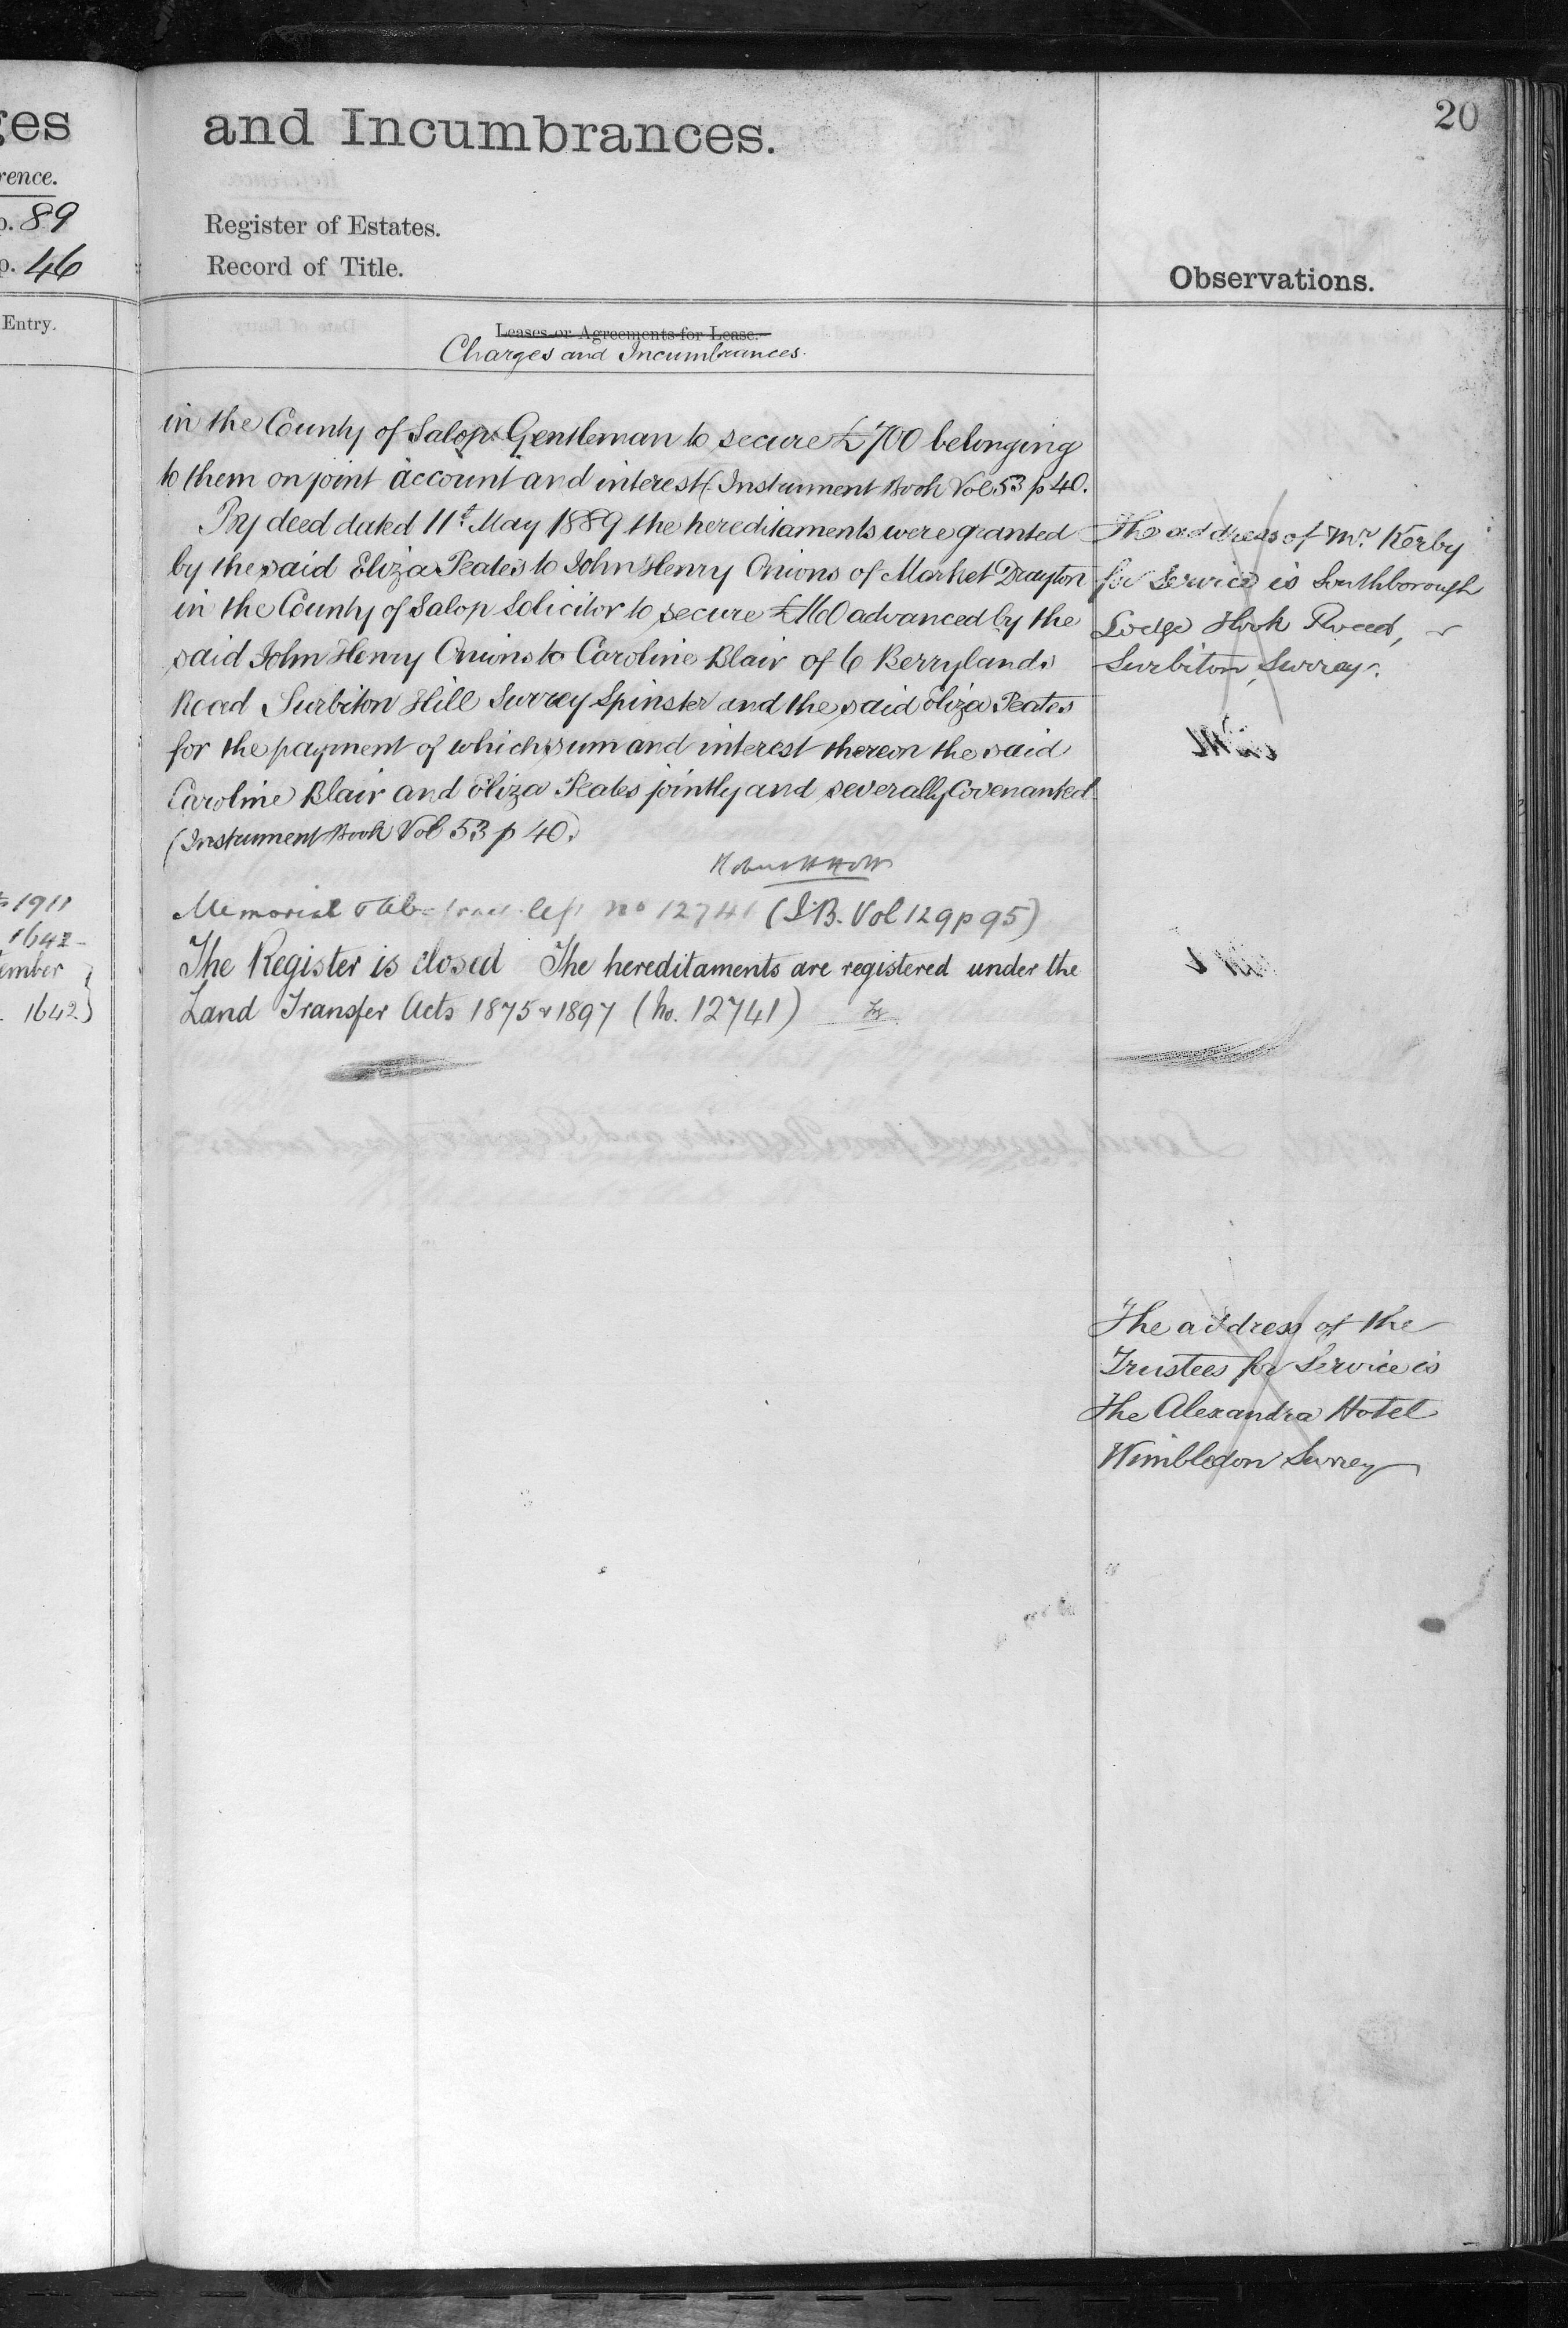 ges
rence.
p. 89
p. 46
Entry.
1911
1642
ember
1642)
and Incumbrances.
20
Register of Estates.
Record of Title.
Observations.
Leases or Agreements for Lease.
Charges and Incumbrances.
in the County of Salop Gentleman to secure £700 belonging
to them on joint account and interest (Instrument Book Vol 53 p 40.
By deed dated 11th May 1889 the hereditaments were granted
by the said Eliza Peates to John Henry Onions of Market Drayton
in the County of Salop Solicitor to secure £160 advanced by the
said John Henry Onions to Caroline Blair of 6 Berrylands
Road Surbiton Hill Surrey Spinster and the said Eliza Peates
for the payment of which sum and interest thereon the said
Caroline Blair and Eliza Peates jointly and severally Covenanted
(Instrument Book Vol 53 p 40.)
Memorial left no 12741 (I.B. Vol 129 p 95)
The Register is closed The hereditaments are registered under the
Land Transfer Acts 1875 & 1897 (No. 12741)
The address of Mr Kerby
for Service is Southborough
Lodge Hook Road,
Surbiton, Surrey.
The address of the
Trustees for Service is
The Alexandra Hotel
Wimbledon Surrey